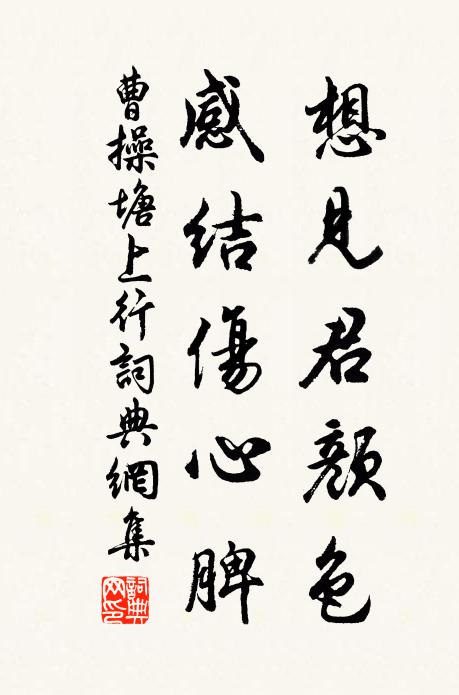 想見君顏色
感結傷心脾
曹操塘上行詞典網集
詞典網印